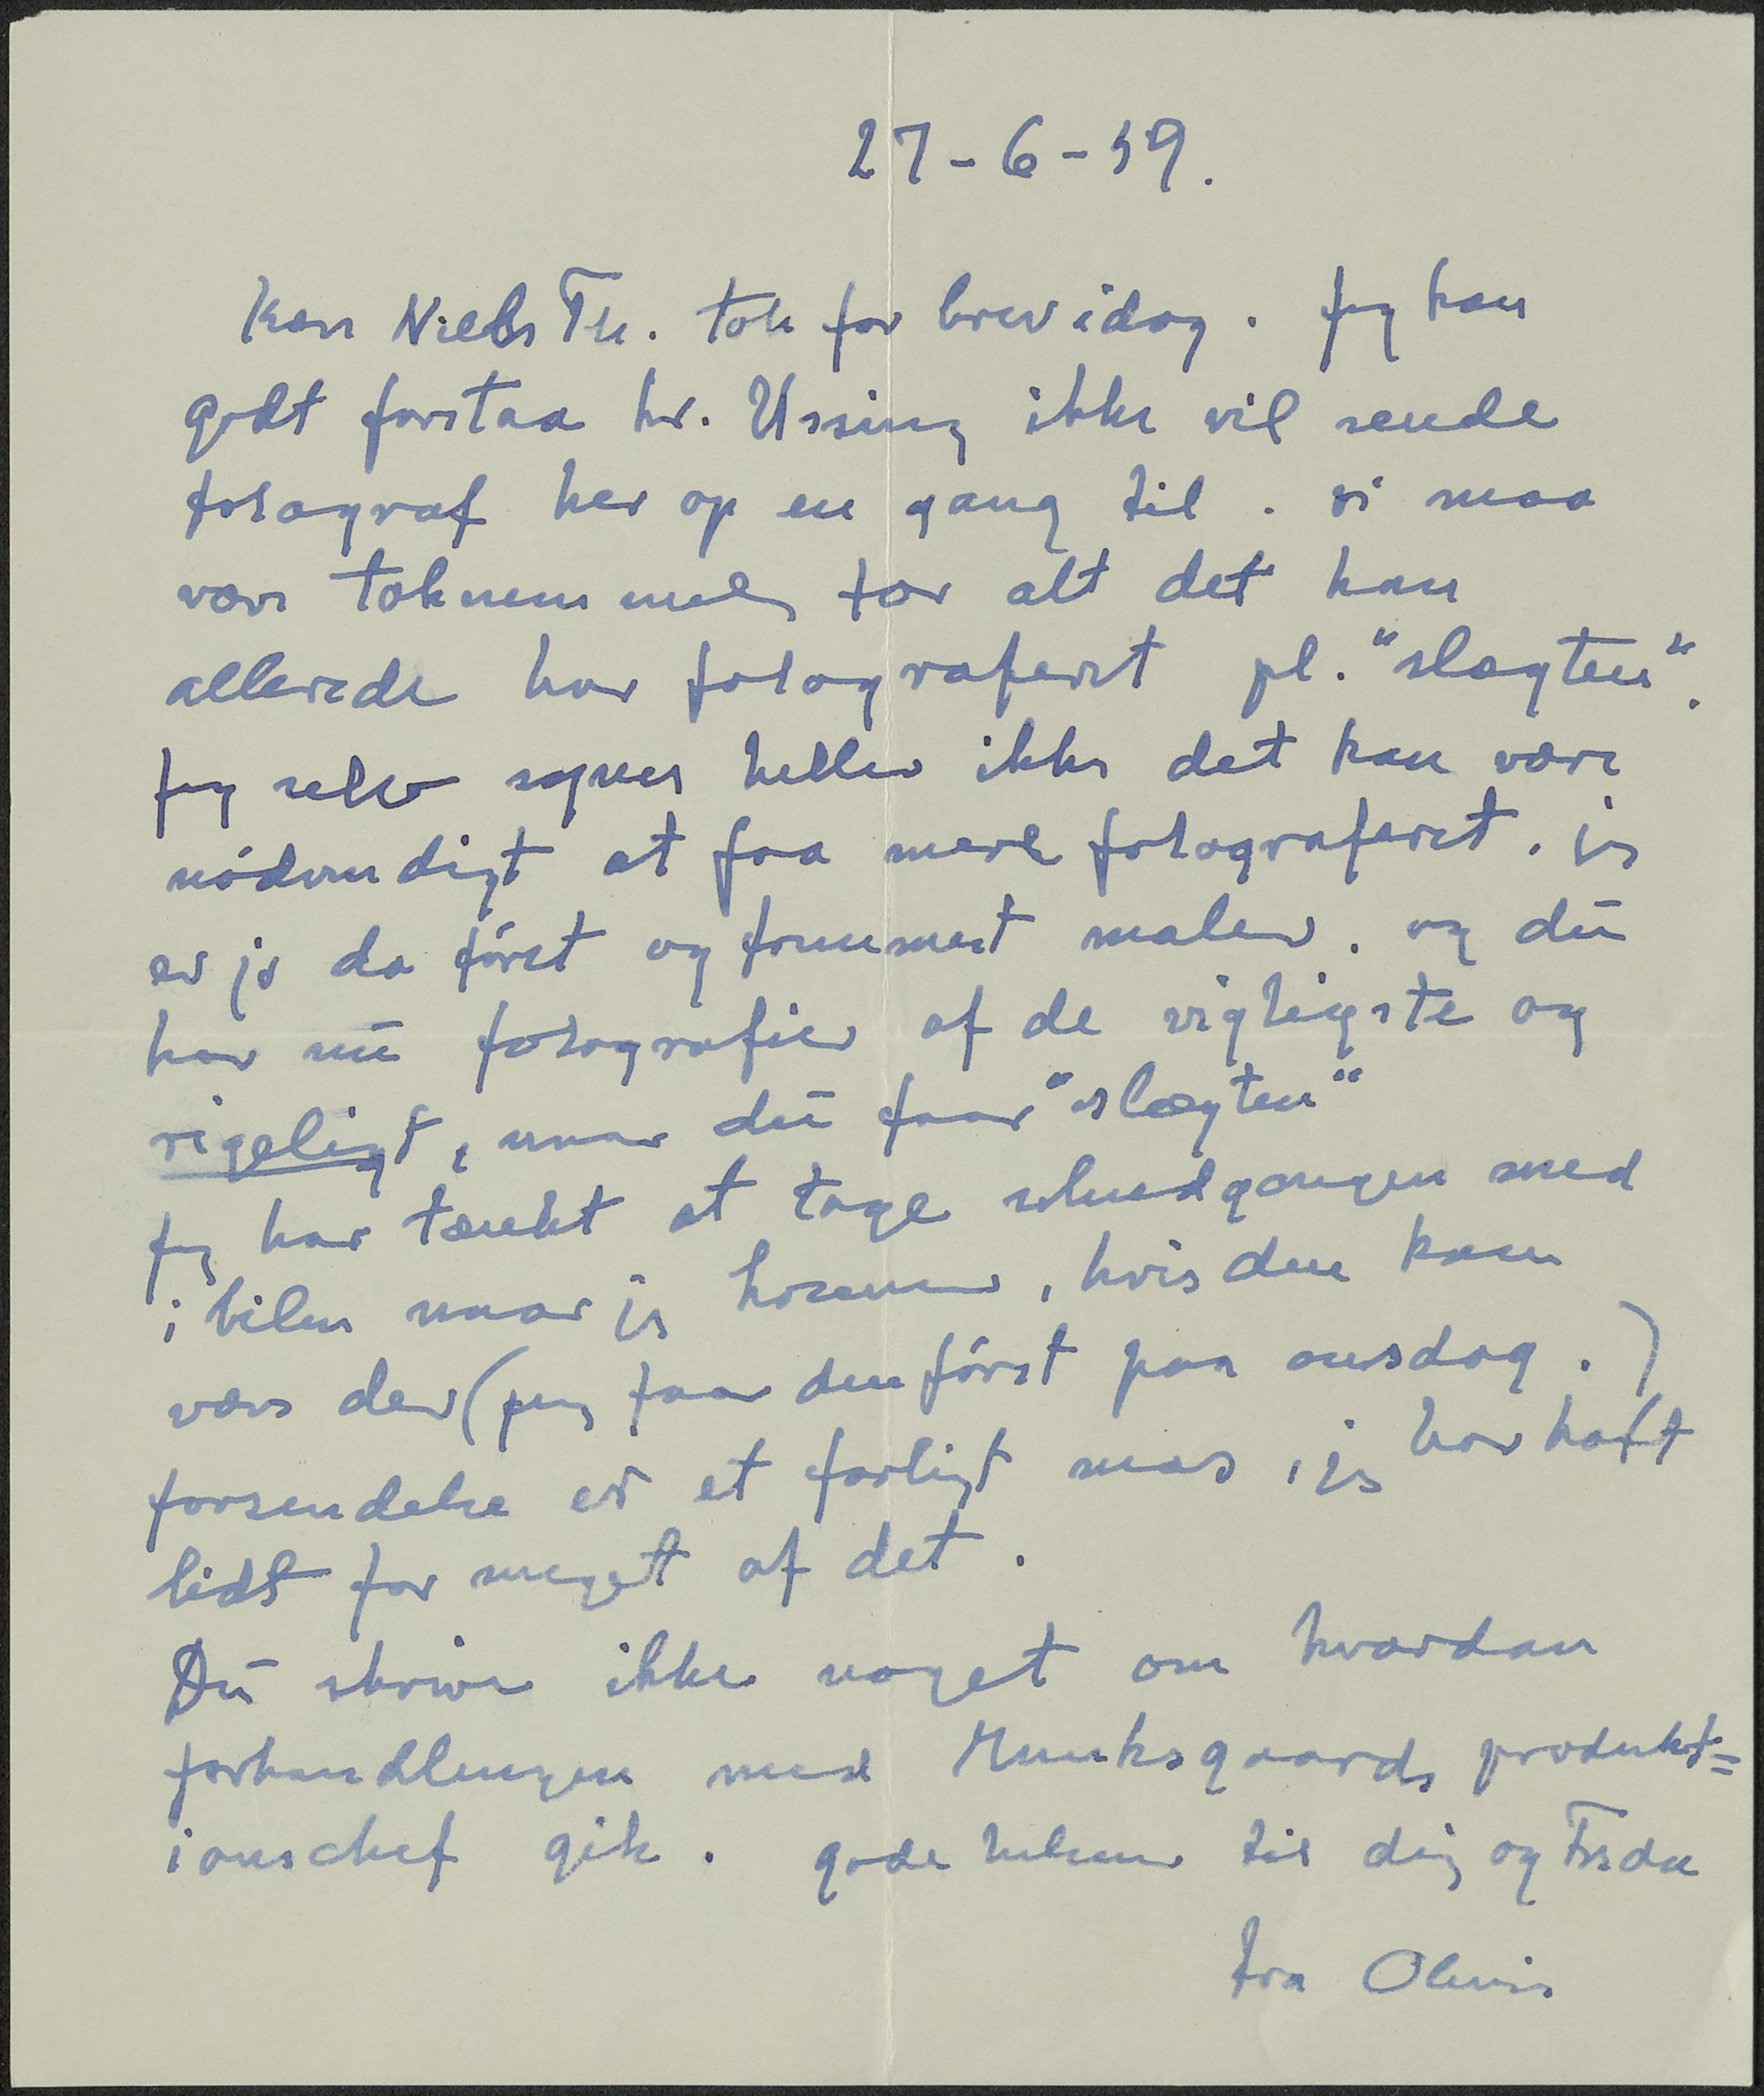 27-6-59.
Kære Niels Th. tak for brev idag. Jeg kan
godt forstaa hr. Ussing ikke vil sende
fotograf her op en gang til. vi maa
være taknemmelig for alt det han
allerede har fotograferet pl. "slægten".
Jeg selv synes heller ikke det kan være
nödvendigt at faa mere fotograferet. jeg
er jo da först og fremmest maler. og du
har nu fotografier af de vigtigste og
rigeligt, naar du faar "slægten"
Jeg har tænkt at tage
i bilen naar jeg kommer, hvis den kan
være der (jeg faar den först paa onsdag.)
forsendelse er et farligt mas, jeg har haft
lidt for meget af det.
Du skriver ikke noget om hvordan
forhandlingen med Munksgaards produkt=
ionschef gik. gode hilsner til dig og
fra